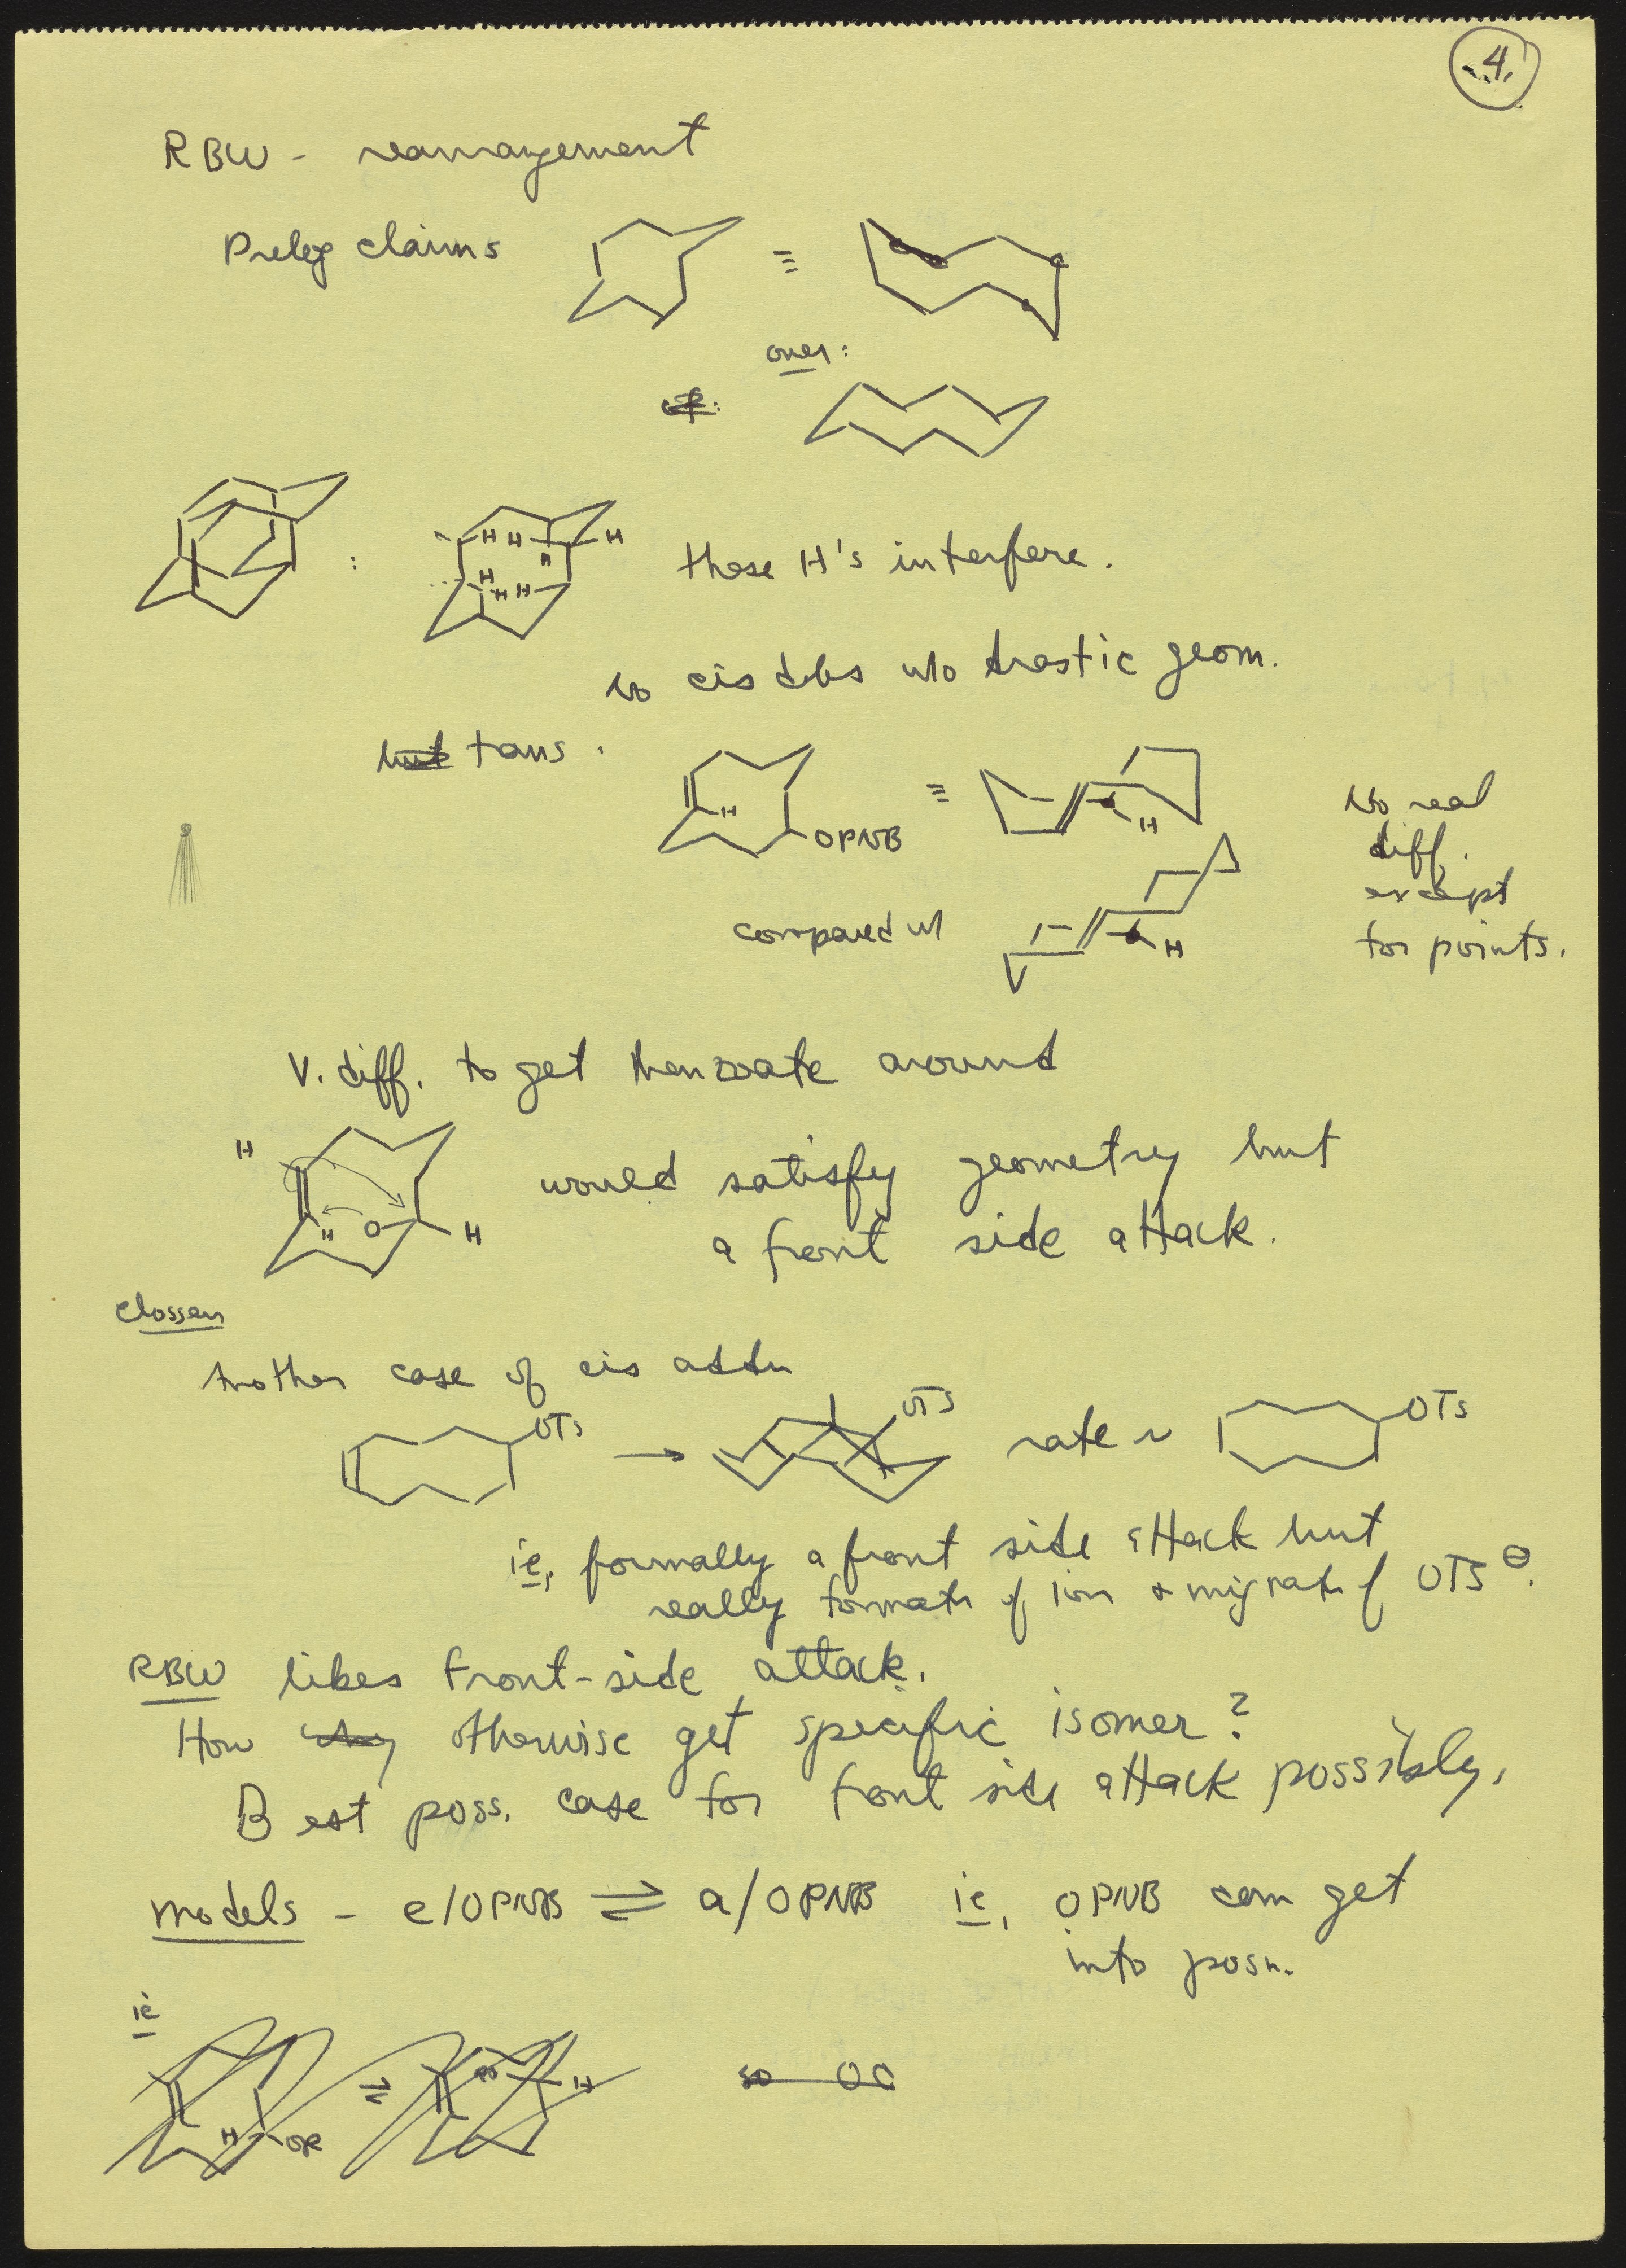 4.
RBW - rearrangement
Prelog claims ≡
over:
or:
H H H
H
H H H
these H's interfere.
no cis dbs w/o drastic geom.
but trans.
H OPNB ≡ H
No real
diff.
except
for points.
compared w/ H
V. diff. to get benzoate around
H
H O H
would satisfy geometry but
a front side attack.
Clossen
Another case of cis addn
OTs → OTS rate ~ OTs
ie, formally a front side attack but
really formatn of ion & migratn of OTS⊖.
RBW likes front-side attack.
How otherwise get specific isomer?
Best poss. case for front side attack possibly.
models - e/OPNB ⇌ a/OPNB ie, OPNB can get
into posn.
ie
H OR ⇌ H so